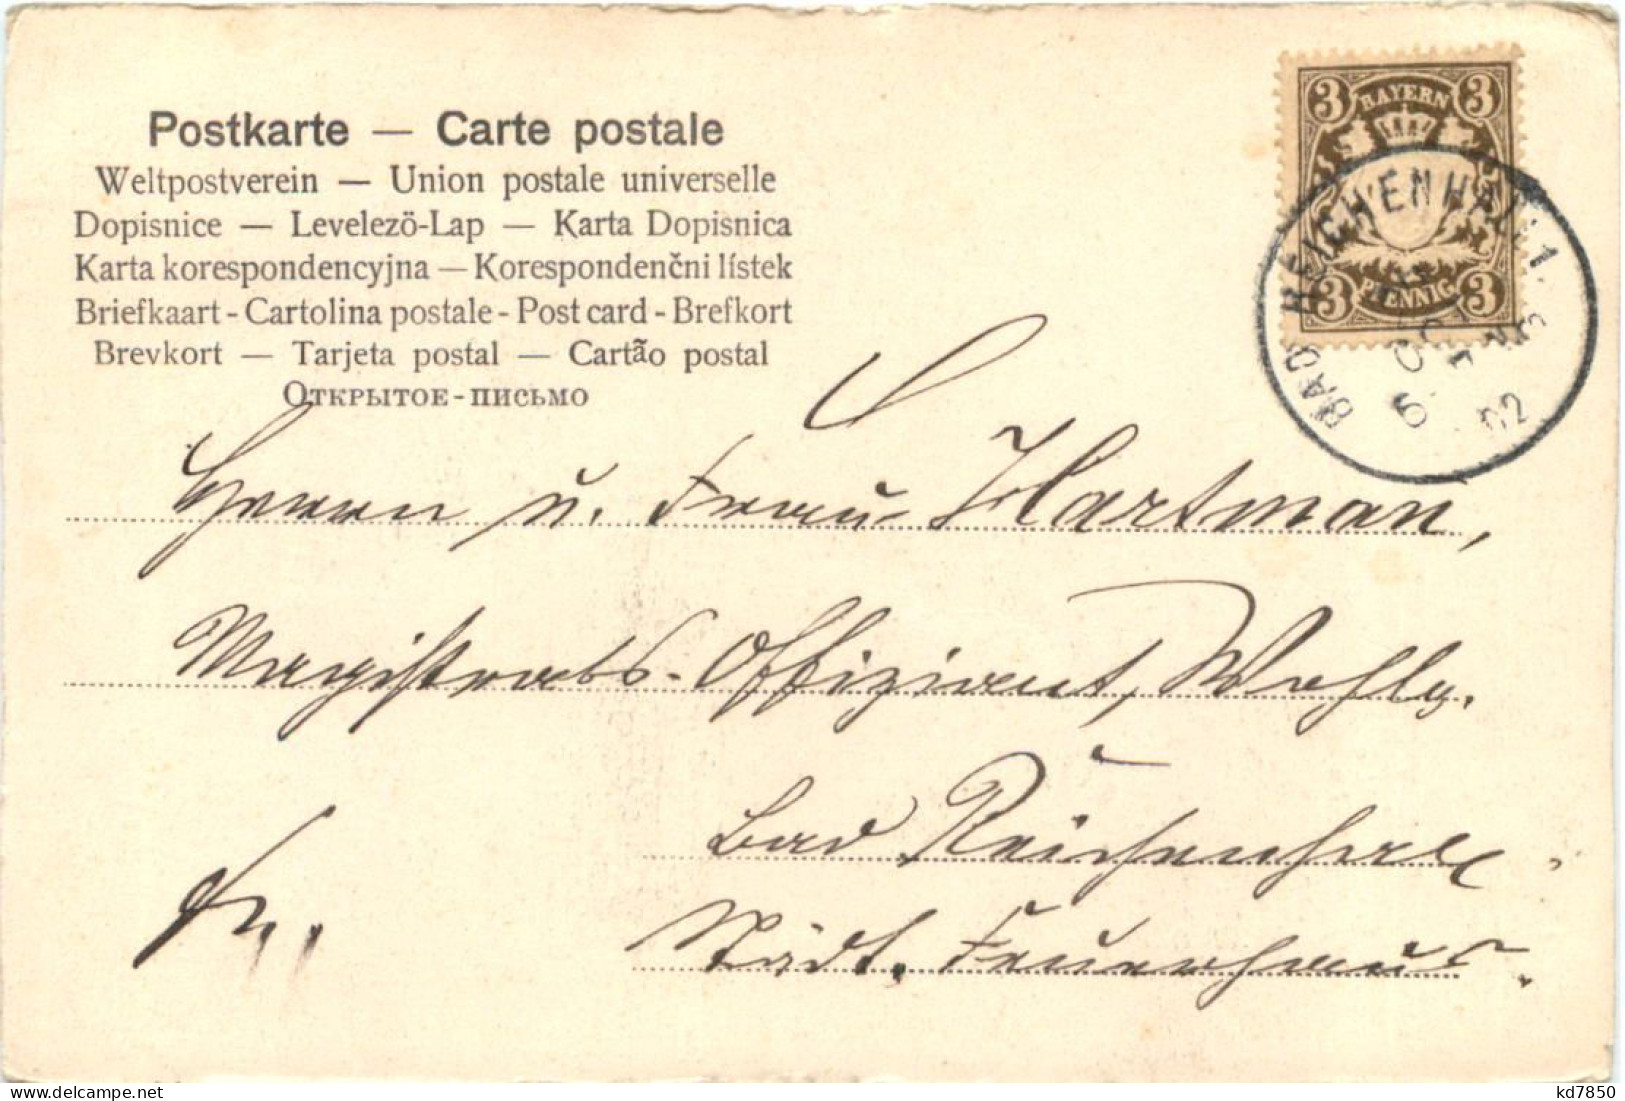 Postkarte — Carte postale
Weltpostverein — Union postale universelle
Dopisnice — Levelező-Lap — Karta Dopisnica
Karta korespondencyjna — Korespondenčni lístek
Briefkaart - Cartolina postale - Post card - Brefkort
Brevkort — Tarjeta postal — Cartão postal
Открытое-письмо
3 BAYERN 3
3 PFENNIG 3
BAD REICHENHALL 1.
6 OCT
02
Herrn u. Frau Hartman,
Magistrats-Offiziant, Wohlg.
Bad Reichenhall
Städt. Feuerhaus.
fr.
kd7850